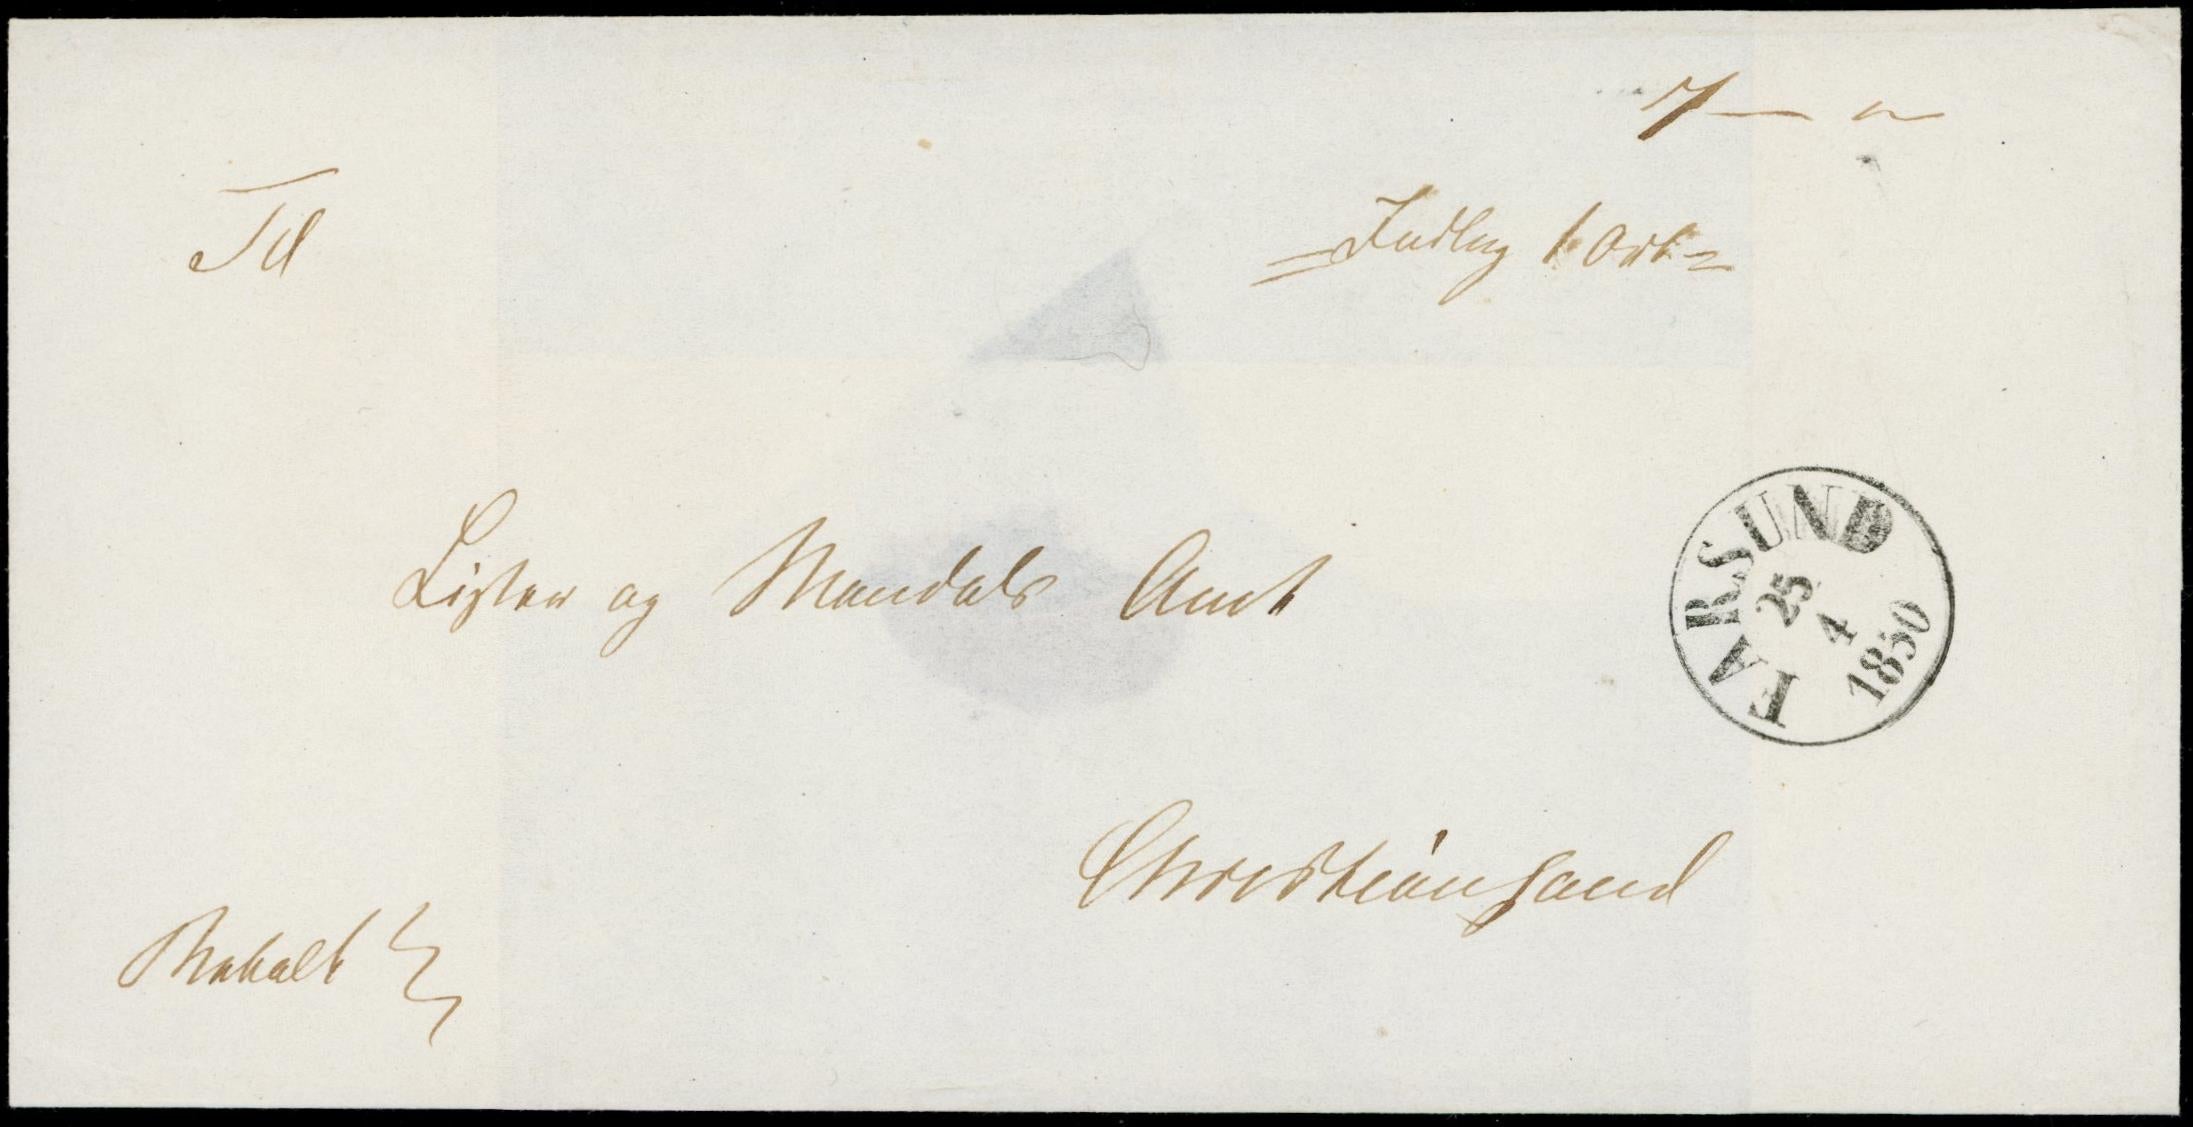 Til
Indlagt 1 Ort
Lister og Mandals Amt
FARSUND
25
4
1850
Christiansand
Betalt